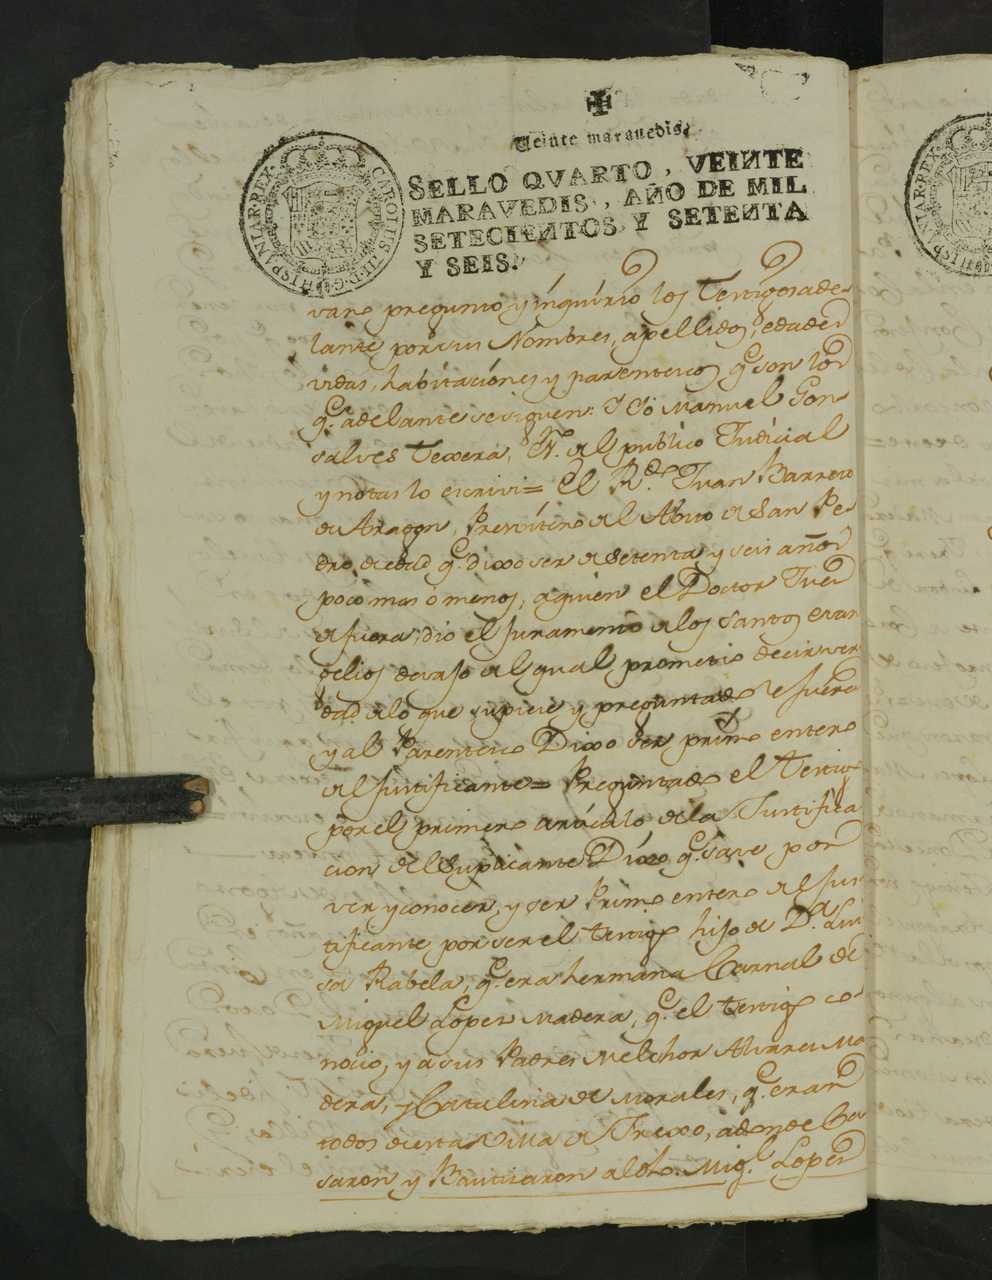 Veinte marauedis.
SELLO QVARTO, VEINTE
MARAVEDIS, AÑO DE MIL
SETECIENTOS Y SETENTA
Y SEIS.
CAROLUS III D G HISPANIAR REX
van preguntó y inquirio los Testigos ade
lante por sus Nombres, apellidos, edades
vidas, habitaciones y parentesco q.e son los
q.e adelante se siguen: Yo Manuel Gon
salves Texera, Publico Judicial
y notas lo escrivi = El R.do Juan Barreto
de Aragon, Presvitero del Avito de San Pe
dro, de edad q.e dixo ser de setenta y seis años
poco mas o menos, a quien el Doctor Juez
de fuera, dio el juramento de los santos evan
gelios devajo del qual prometio decir ver
dad de lo que supiese y preguntado le fuere
y al Parentesco Dixo ser primo entero
del justificante = Preguntado el Testigo
por el primero articulo de la Justifica
cion del Suplicante Dixo q.e save por
ver y conocer, y ser Primo entero del Jus
tificante por ser el testigo hijo de D.a Lui
sa Rabela, q.e era hermana Carnal de
Miguel Lopes Madera, q.e el testigo co
nocio, y a sus Padres Melchor Alvares Ma
dera, y Catalina de Morales, q.e eran
todos de esta Villa de Frexo, adonde Ca
saron y Bautizaron al dho. Mig.l Lopes